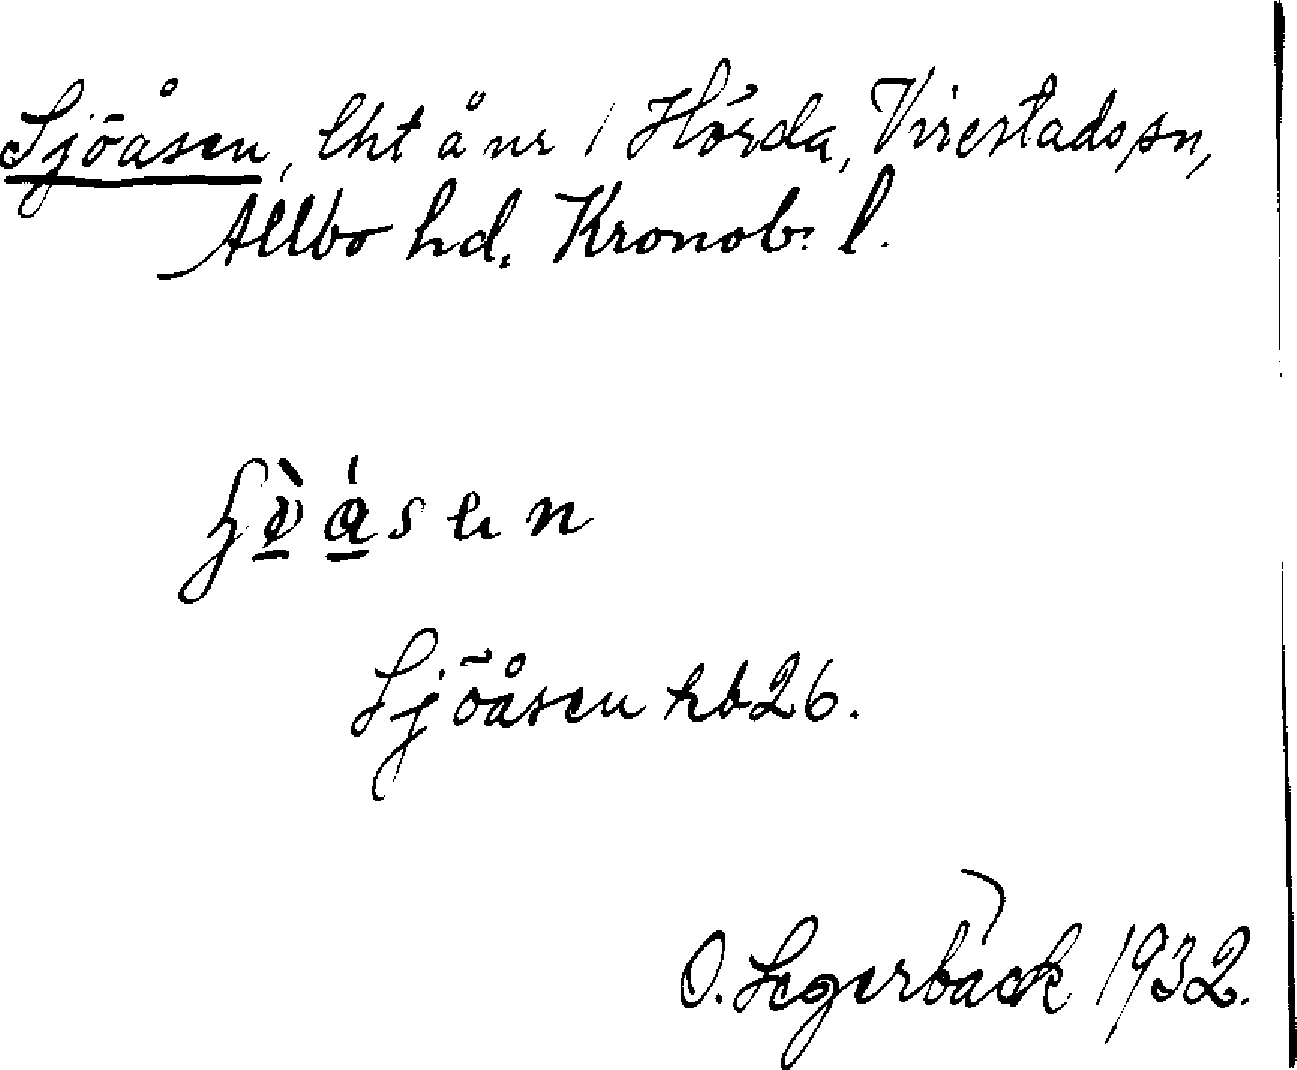 Sjöåsen, lht å nr 1 Hörda, Virestads sn,
Allbo hd. Kronob. l.
Sjöåsen kb 26.
O. Segerbäck 1932.